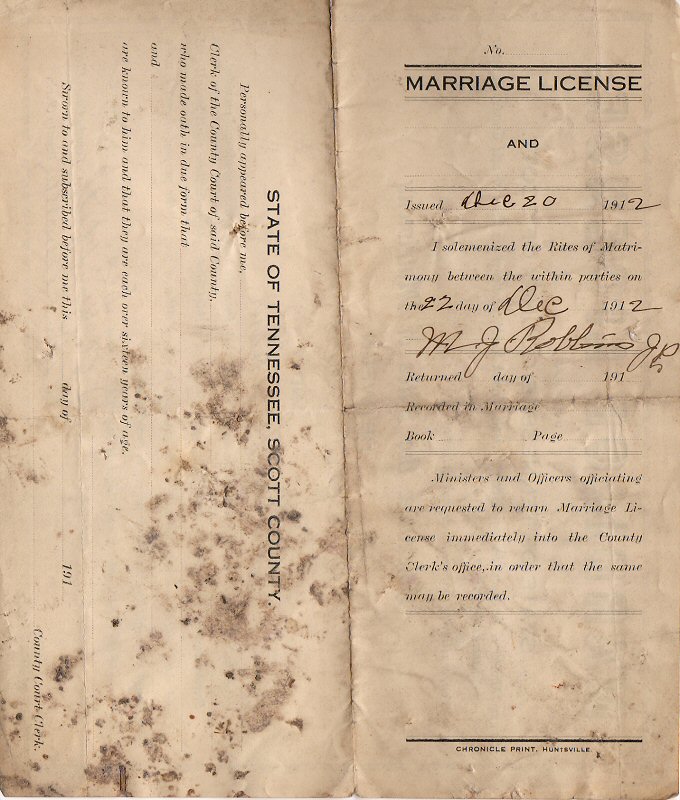 No.
MARRIAGE LICENSE
AND
Issued Dec 20 1912
I solemenized the Rites of Matri-
mony between the within parties on
the 22 day of Dec 1912
M J Robbins J P
Returned day of 191
Recorded in Marriage
Book Page
Ministers and Officers officiating
are requested to return Marriage Li-
cense immediately into the County
Clerk's office, in order that the same
may be recorded.
CHRONICLE PRINT, HUNTSVILLE
STATE OF TENNESSEE, SCOTT COUNTY.
Personally appeared before me,
Clerk of the County Court of said County,
who made oath in due form that
and
are known to him and that they are each over sixteen years of age.
Sworn to and subscribed before me this day of 191
County Court Clerk.